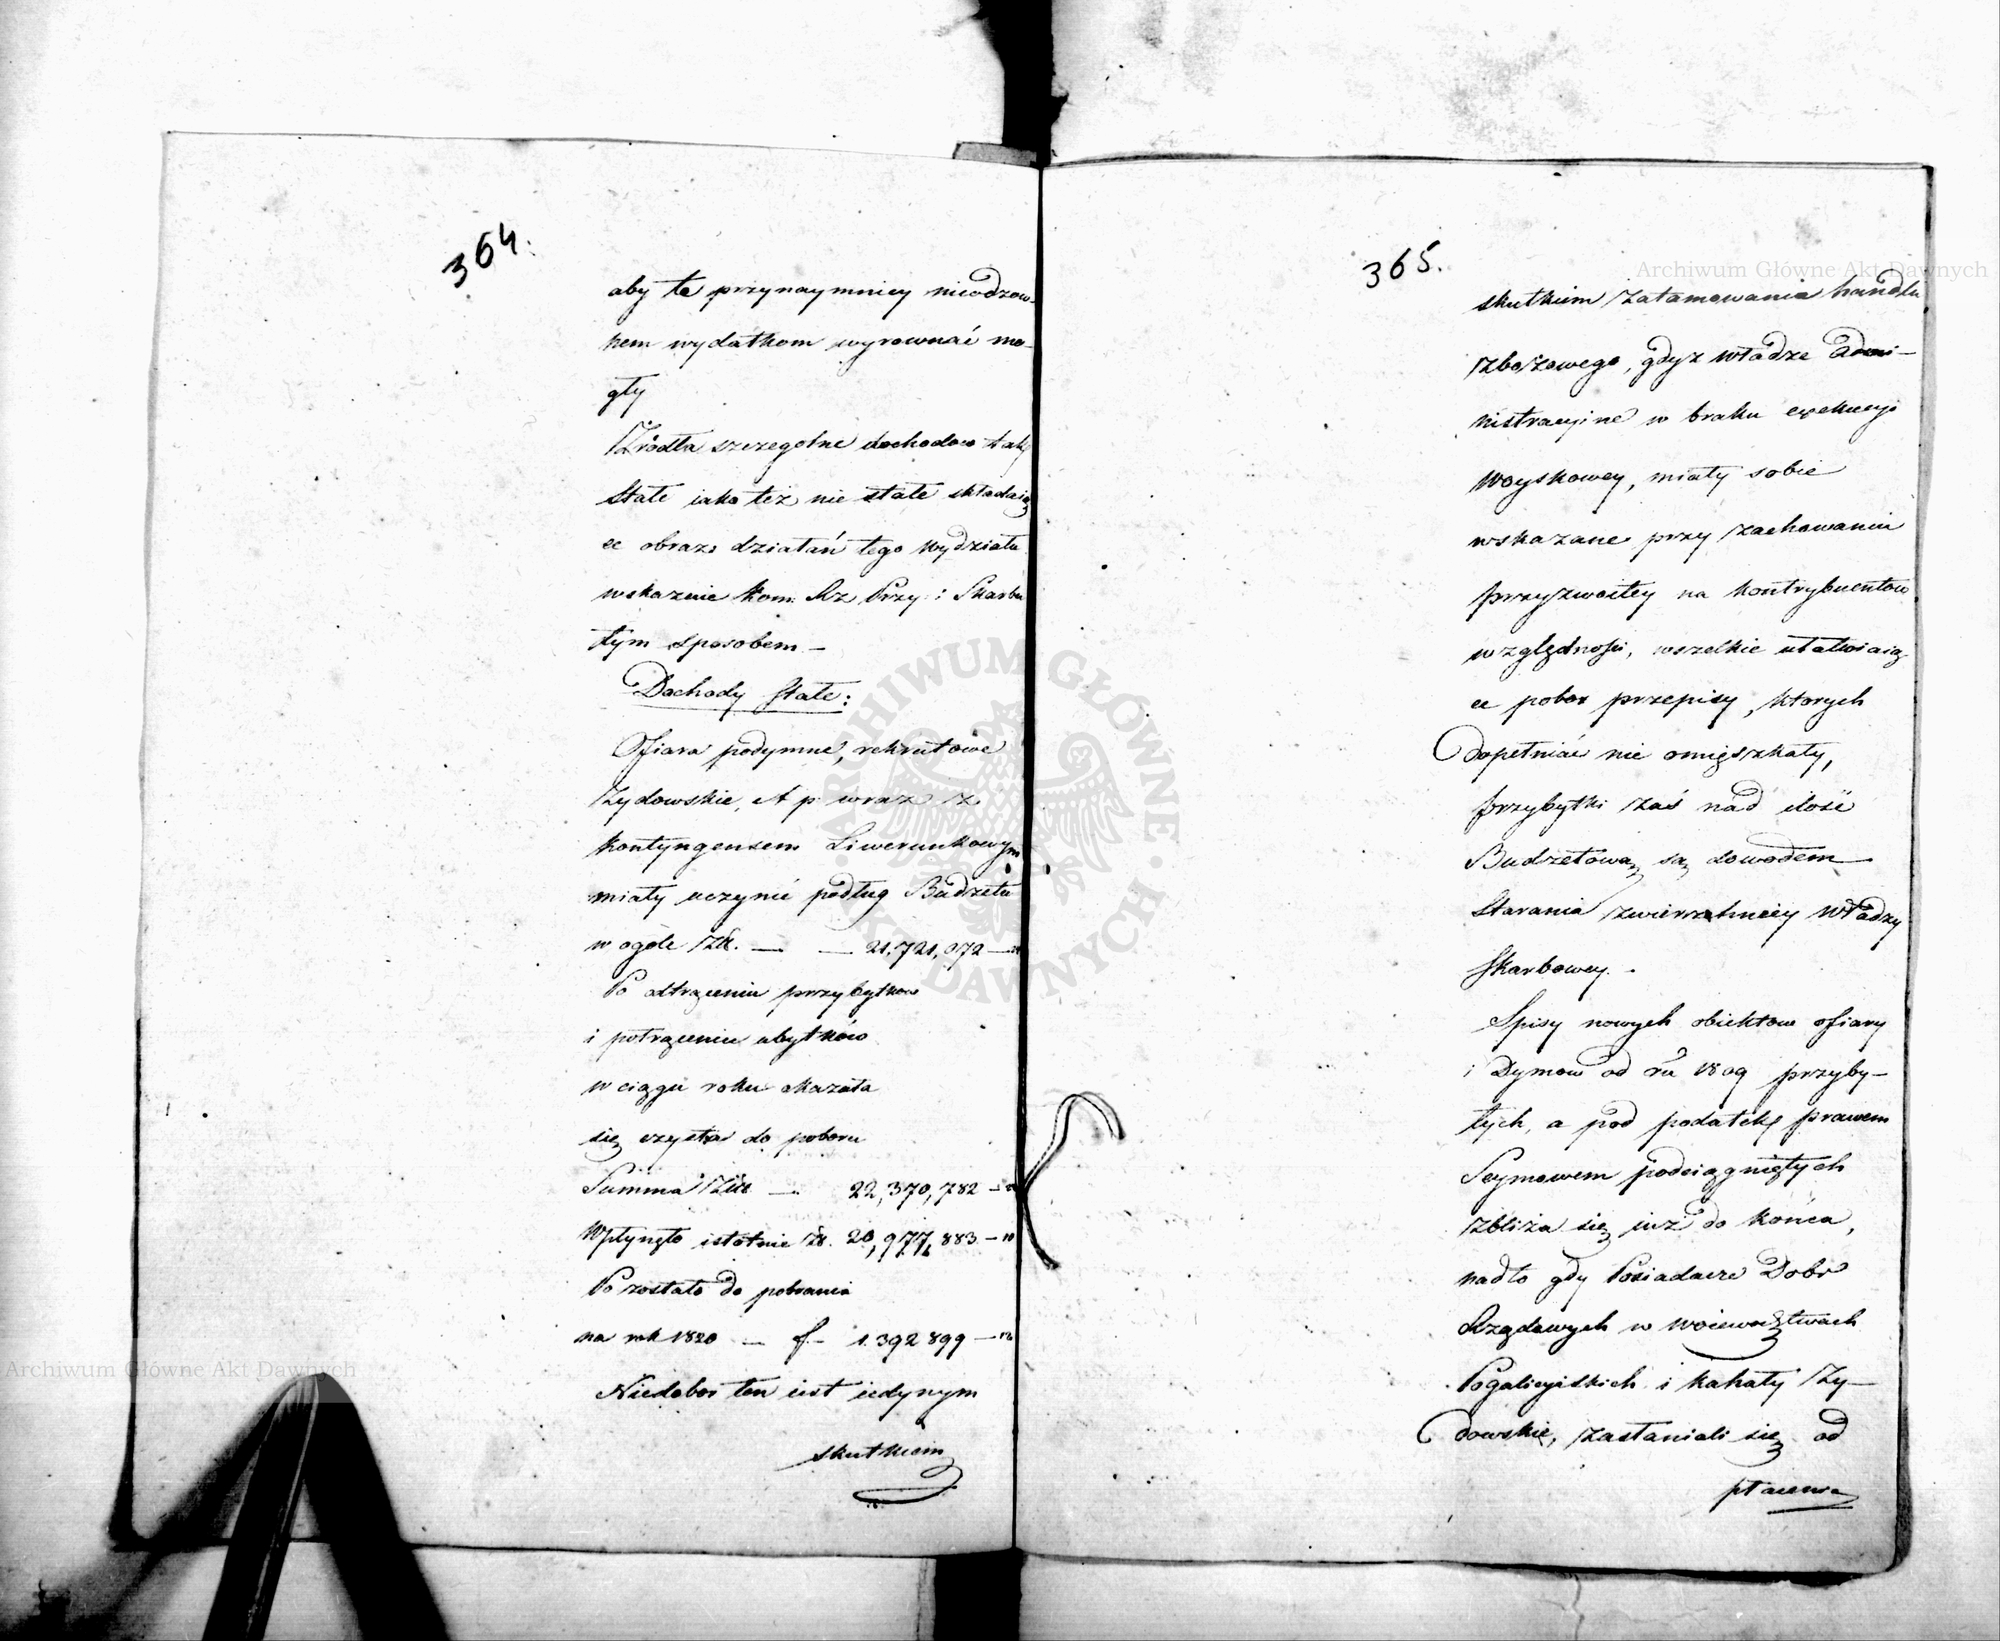 364.
aby te przynaymniey nieodzow-
nem wydatkom wyrownać mo-
gły
Zrodła szczegolne dochodow tak
stałe iako też nie stałe składaią
ce obraz działań tego Wydziału
wskazuie Kom: Rz Przy: i Skarbu
tym sposobem –
Dochody stałe:
Ofiara podymne, rekrutowe
Żydowskie, et p wraz z
kontyngensem Liwerunkowym
miały uczynić podług Budżetu
w ogóle Zł. — — 21,721,072 —
Po odtrąceniu przybytkow
i potrąceniu ubytków
w ciągu roku okazała
się czysta do poboru
Summa Złł — 22,370,782 —
Wpłynęło istotnie Zł. 20,977,883 – 10
Pozostało do pobrania
na rok 1820 — f– 1.392 899 – 12
Niedobor ten iest iedynym
skutkiem
365.
skutkiem zatamowania handlu
zbożowego, gdyż władze admi-
nistracyine w braku exekucyi
Woyskowey, miały sobie
wskazane przy zachowaniu
przyzwoitey na kontrybuentow
względności, wszelkie ułatwiaią
ce pobor przepisy, ktorych
dopełniać nie omięszkały,
przybytki zaś nad ilość
Budżetową są dowodem
Starania zwierzchniey Władzy
Skarbowey. –
Spisy nowych obiektow ofiary
i Dymow od ru 1809 przyby-
łych, a pod podatek prawem
Seymowem podciągniętych
zbliża się iuż do końca,
nadto gdy Posiadacze Dobr
Rządowych w Woiewodztwach
Pogalicyiskich i kahały Ży-
dowskie, zasłaniali się od
płacenia
Archiwum Główne Akt Dawnych
Archiwum Główne Akt Dawnych
ARCHIWUM GŁÓWNE · AKT DAWNYCH ·